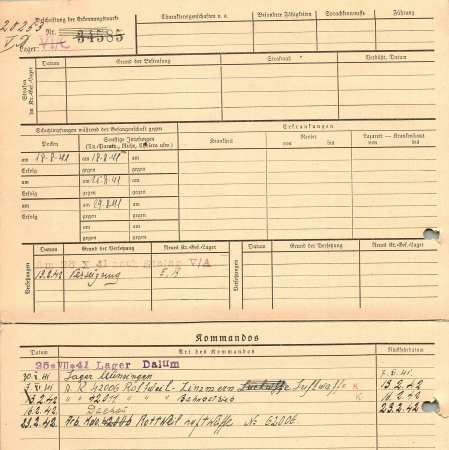 20253
V J
Beschriftung der Erkennungsmarke
Nr. 34585
Lager: VI/C
Charaktereigenschaften u. a.
Besondere Fähigkeiten
Sprachkenntnisse
Führung
Strafen
im Kr.-Gef.-Lager
Datum
Grund der Bestrafung
Strafmaß
Verbüßt, Datum
Schutzimpfungen während der Gefangenschaft gegen
Pocken
Sonstige Impfungen
(Ty.-Paraty., Ruhr, Cholera usw.)
am 18-8-41
am 18-8-41
Erfolg
gegen
am
am 25-8-41
Erfolg
gegen
am
am 29-8-41
Erfolg
gegen
am
gegen
am
gegen
Erkrankungen
Krankheit
Revier
von bis
Lazarett — Krankenhaus
von bis
Versetzungen
Datum
Grund der Versetzung
Neues Kr.-Gef.-Lager
Am 28 X 41 nach Stalag V/A
13.2.42 Versetzung
Versetzungen
Datum
Grund der Versetzung
Neues Kr.-Gef.-Lager
Kommandos
Datum
Art des Kommandos
Rückkehrdatum
25. VII. 41 Lager Dalum
Lager Münsingen
A. K. 42006 Rottweil - Zimmern Luftwaffe K
13.2.42
12011 K
16.2.42
Dachau
23.2.42
23.2.42
Rottweil Luftwaffe No 62006.